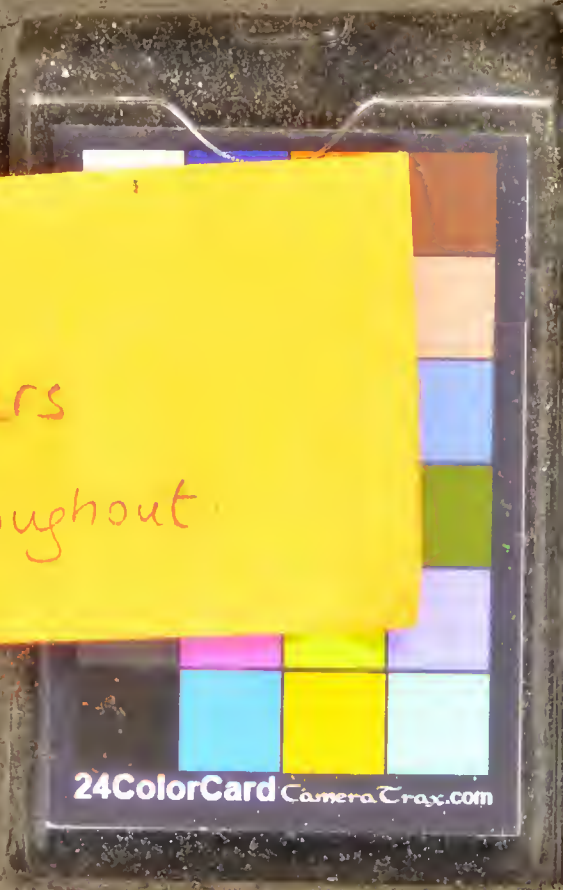 rs
oughout
24ColorCard CameraTrax.com